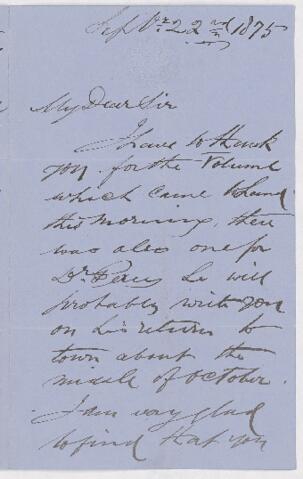 Septr 22nd 1875
My Dear Sir
I have to thank
you for the Volume
which came to hand
this morning, there
was also one for
Dr Percy he will
probably write you
on his return to
town about the
middle of October.
I am very glad
to find that you